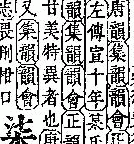 唐韻集韻韻會正
左傳宣十年
韻集韻韻會正韻
美特異者也唐
又集韻韻會柒
柑口